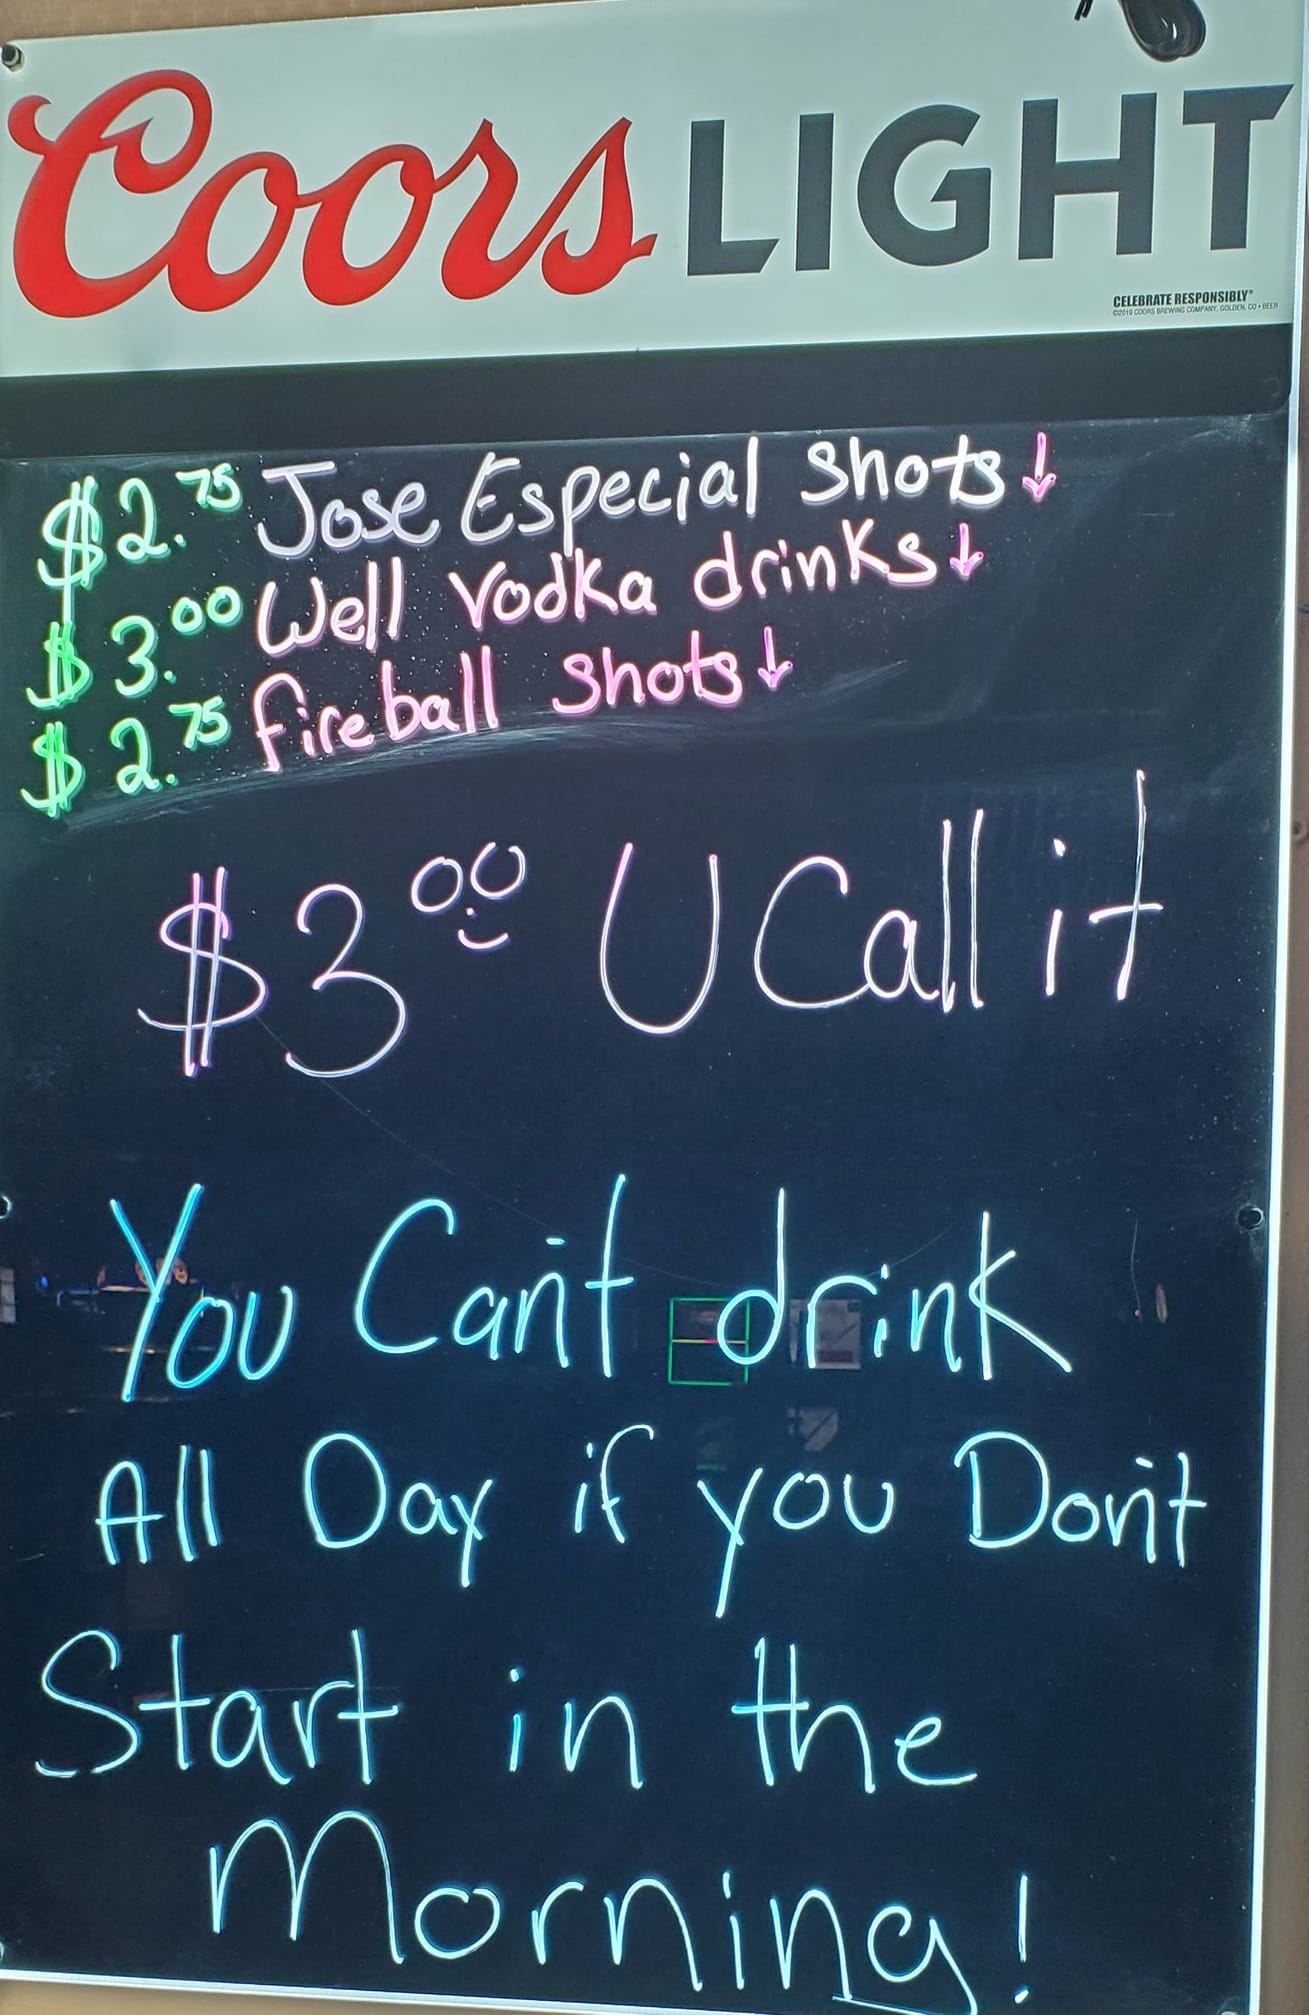 Coors LIGHT
CELEBRATE RESPONSIBLY®
©2019 COORS BREWING COMPANY, GOLDEN, CO • BEER
$2.75 Jose Especial Shots↓
$3.00 Well Vodka drinks↓
$2.75 fireball shots↓
$3.00 U Call it
You Can't drink
All Day if you Don't
Start in the
Morning!